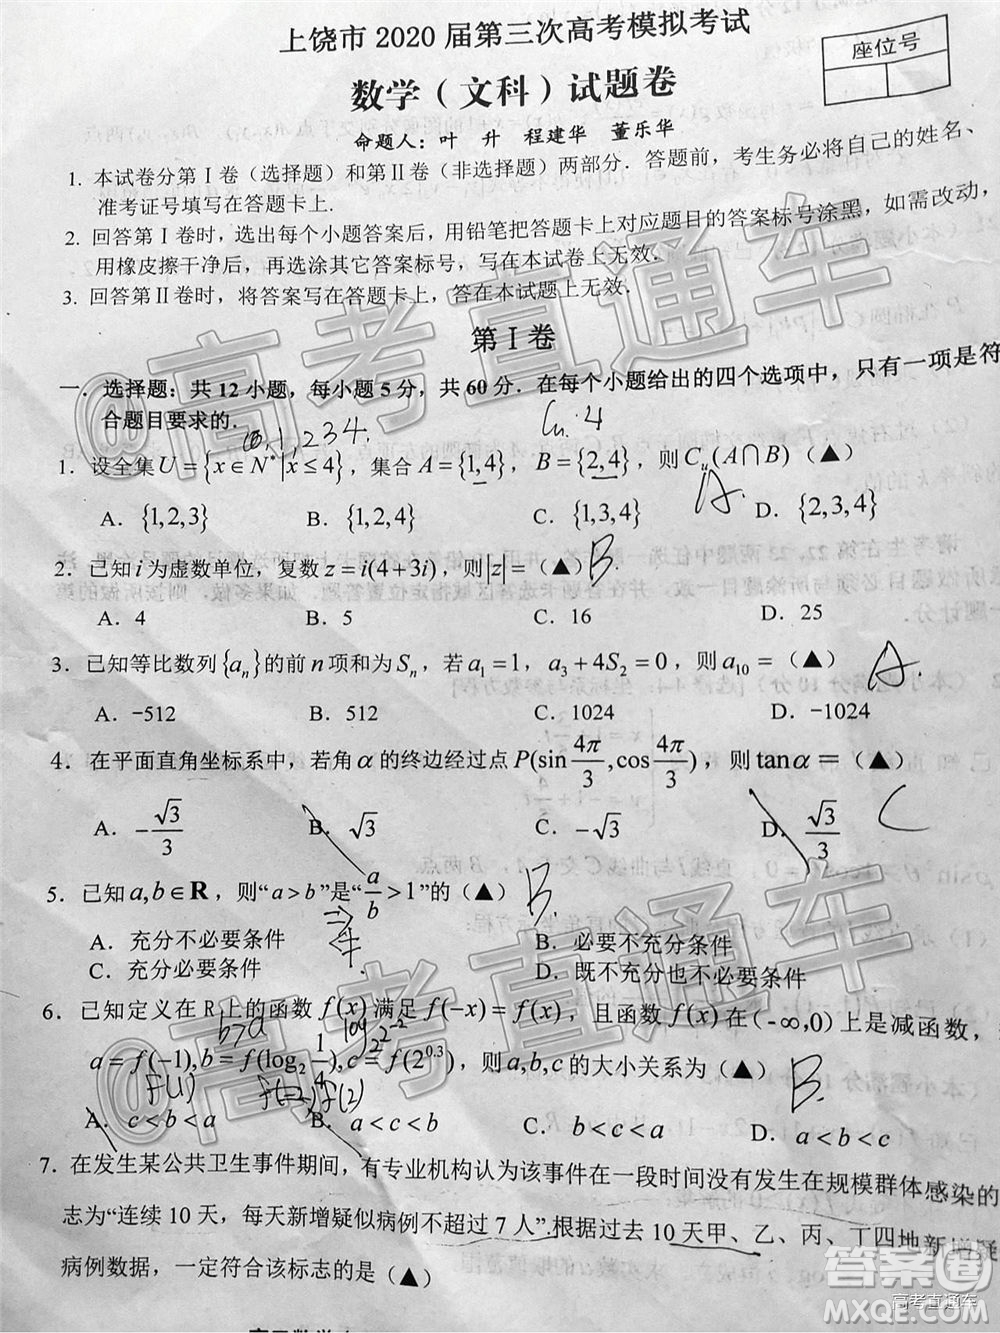 上饶市 2020 届第三次高考模拟考试
座位号
数学（文科）试题卷
命题人：叶 升 程建华 董乐华
1. 本试卷分第Ⅰ卷（选择题）和第Ⅱ卷（非选择题）两部分．答题前，考生务必将自己的姓名、
准考证号填写在答题卡上．
2. 回答第Ⅰ卷时，选出每个小题答案后，用铅笔把答题卡上对应题目的答案标号涂黑，如需改动，
用橡皮擦干净后，再选涂其它答案标号，写在本试卷上无效．
3. 回答第Ⅱ卷时，将答案写在答题卡上，答在本试题上无效．
第Ⅰ卷
一．选择题：共 12 小题，每小题 5 分，共 60 分．在每个小题给出的四个选项中，只有一项是符
合题目要求的．
1 2 3 4
1．设全集U={x∈N*|x≤4}，集合 A={1,4}，B={2,4}，则C_u(A∩B)（▲） A.
A．{1,2,3} B．{1,2,4} C．{1,3,4} D．{2,3,4}
2．已知 i 为虚数单位，复数 z=i(4+3i)，则|z|=（▲） B.
A．4 B．5 C．16 D．25
3．已知等比数列{a_n}的前 n 项和为 S_n，若 a_1=1，a_3+4S_2=0，则 a_10=（▲） A.
A．-512 B．512 C．1024 D．-1024
4．在平面直角坐标系中，若角 α 的终边经过点 P(sin 4π/3, cos 4π/3)，则 tan α =（▲） C
A．-√3/3 B．√3 C．-√3 D．√3/3
5．已知 a,b∈R，则“a>b”是“a/b>1”的（▲） B.
A．充分不必要条件 B．必要不充分条件
C．充分必要条件 D．既不充分也不必要条件
6．已知定义在 R 上的函数 f(x) 满足 f(-x)=f(x)，且函数 f(x) 在(-∞,0)上是减函数，若
b>a log_2 2^-2
a=f(-1),b=f(log_2 1/4),c=f(2^0.3)，则 a,b,c 的大小关系为（▲） B.
f(1) f(-2) f(2)
A．c<b<a B．a<c<b C．b<c<a D．a<b<c
7．在发生某公共卫生事件期间，有专业机构认为该事件在一段时间没有发生在规模群体感染的
志为“连续 10 天，每天新增疑似病例不超过 7 人”.根据过去 10 天甲、乙、丙、丁四地新增疑
病例数据，一定符合该标志的是（▲）
@高考直通车
@高考直通车
答案圈
MXQE.COM
高考直通车